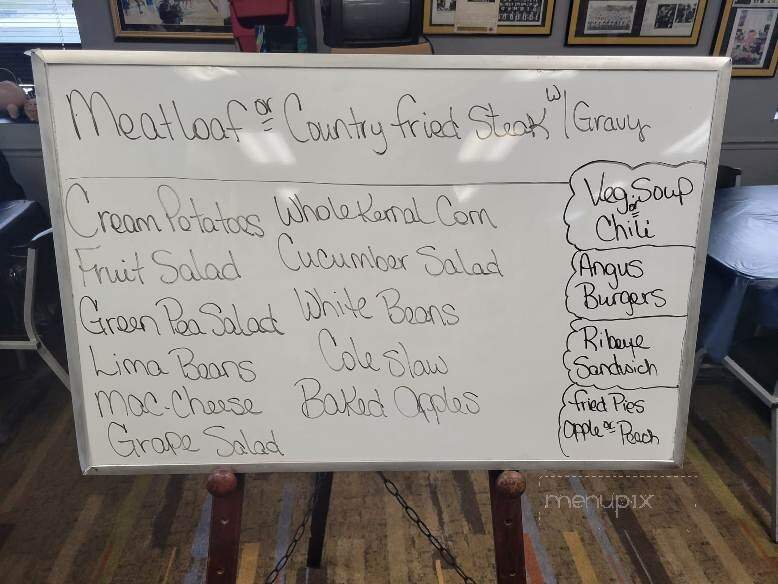 Meatloaf or Country fried Steak w/ Gravy
Cream Potatoes
Fruit Salad
Green Pea Salad
Lima Beans
Mac. Cheese
Grape Salad
Whole Kernal Corn
Cucumber Salad
White Beans
Cole Slaw
Baked Apples
Veg. Soup
or
Chili
Angus
Burgers
Ribeye
Sandwich
fried Pies
Apple or Peach
menupix